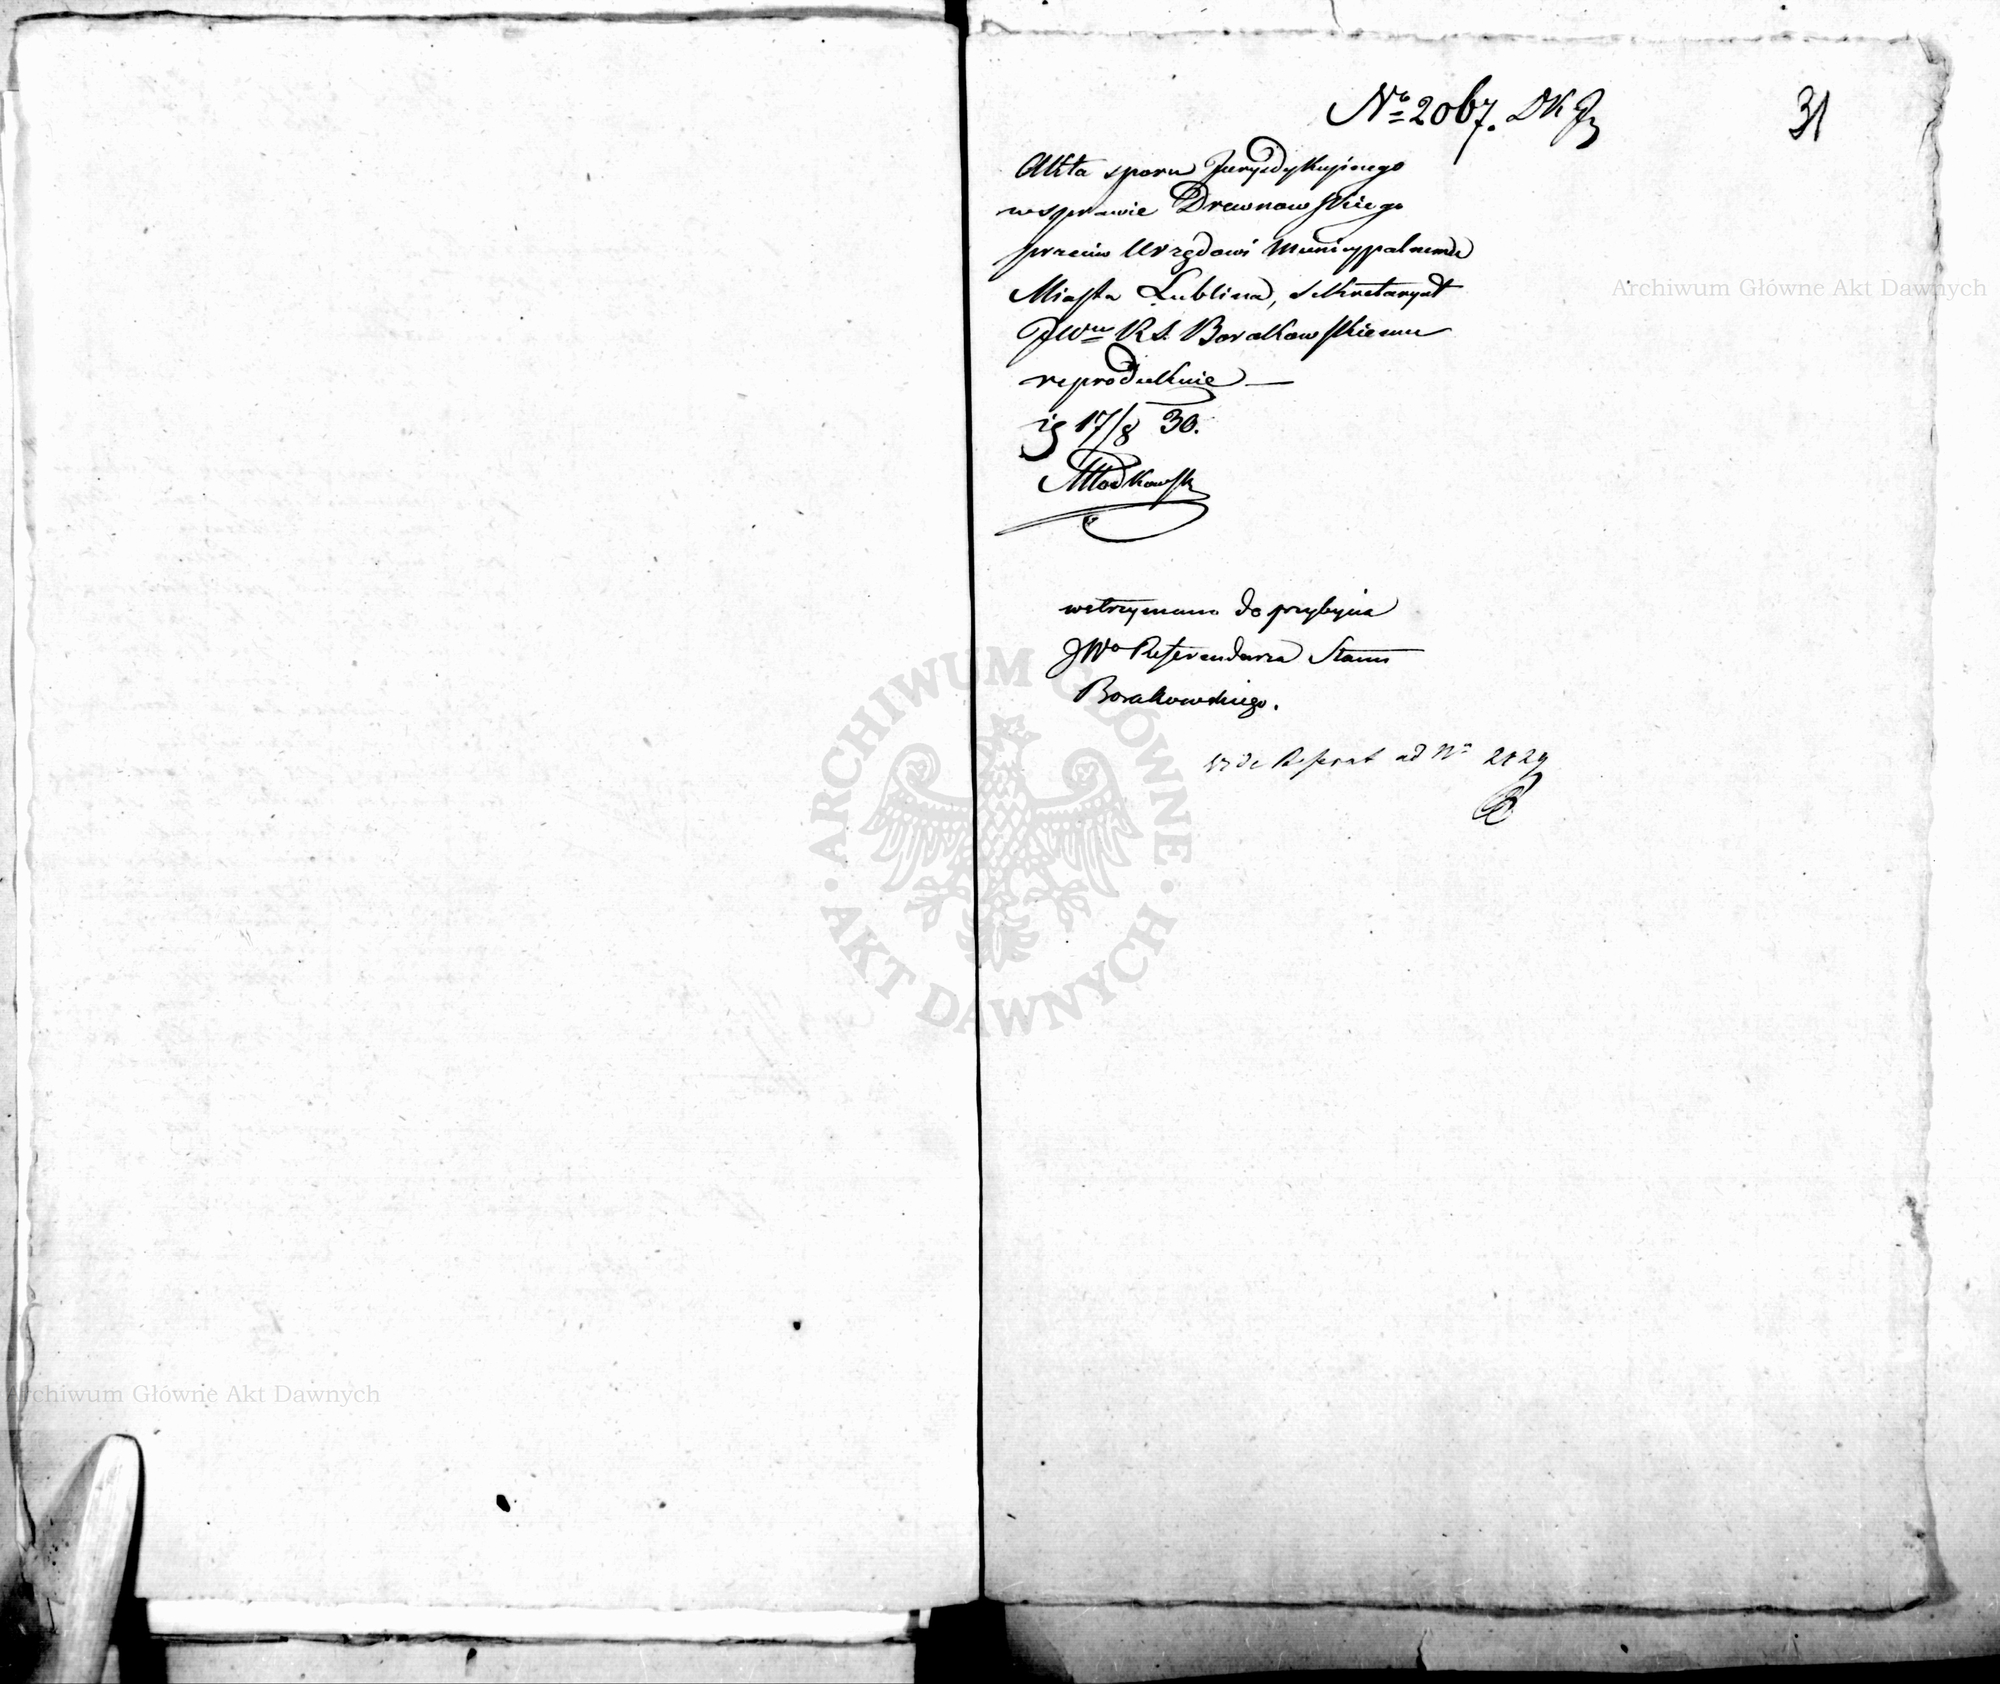 No 2067. DKJ
31
Akta sporu Jurysdykcyinego
w sprawie Drewnowskiego
przeciw Urzędowi Municypalnemu
Miasta Lublina, Sekretaryat
JWmu R S. Borakowskiemu
reprodukuie —
17/8 30.
Młodkowski
wstrzymano do przybycia
JWo Referendarza Stanu
Borakowskiego.
Vide Referat ad No 2129
Archiwum Główne Akt Dawnych
ARCHIWUM GŁÓWNE AKT DAWNYCH
Archiwum Główne Akt Dawnych